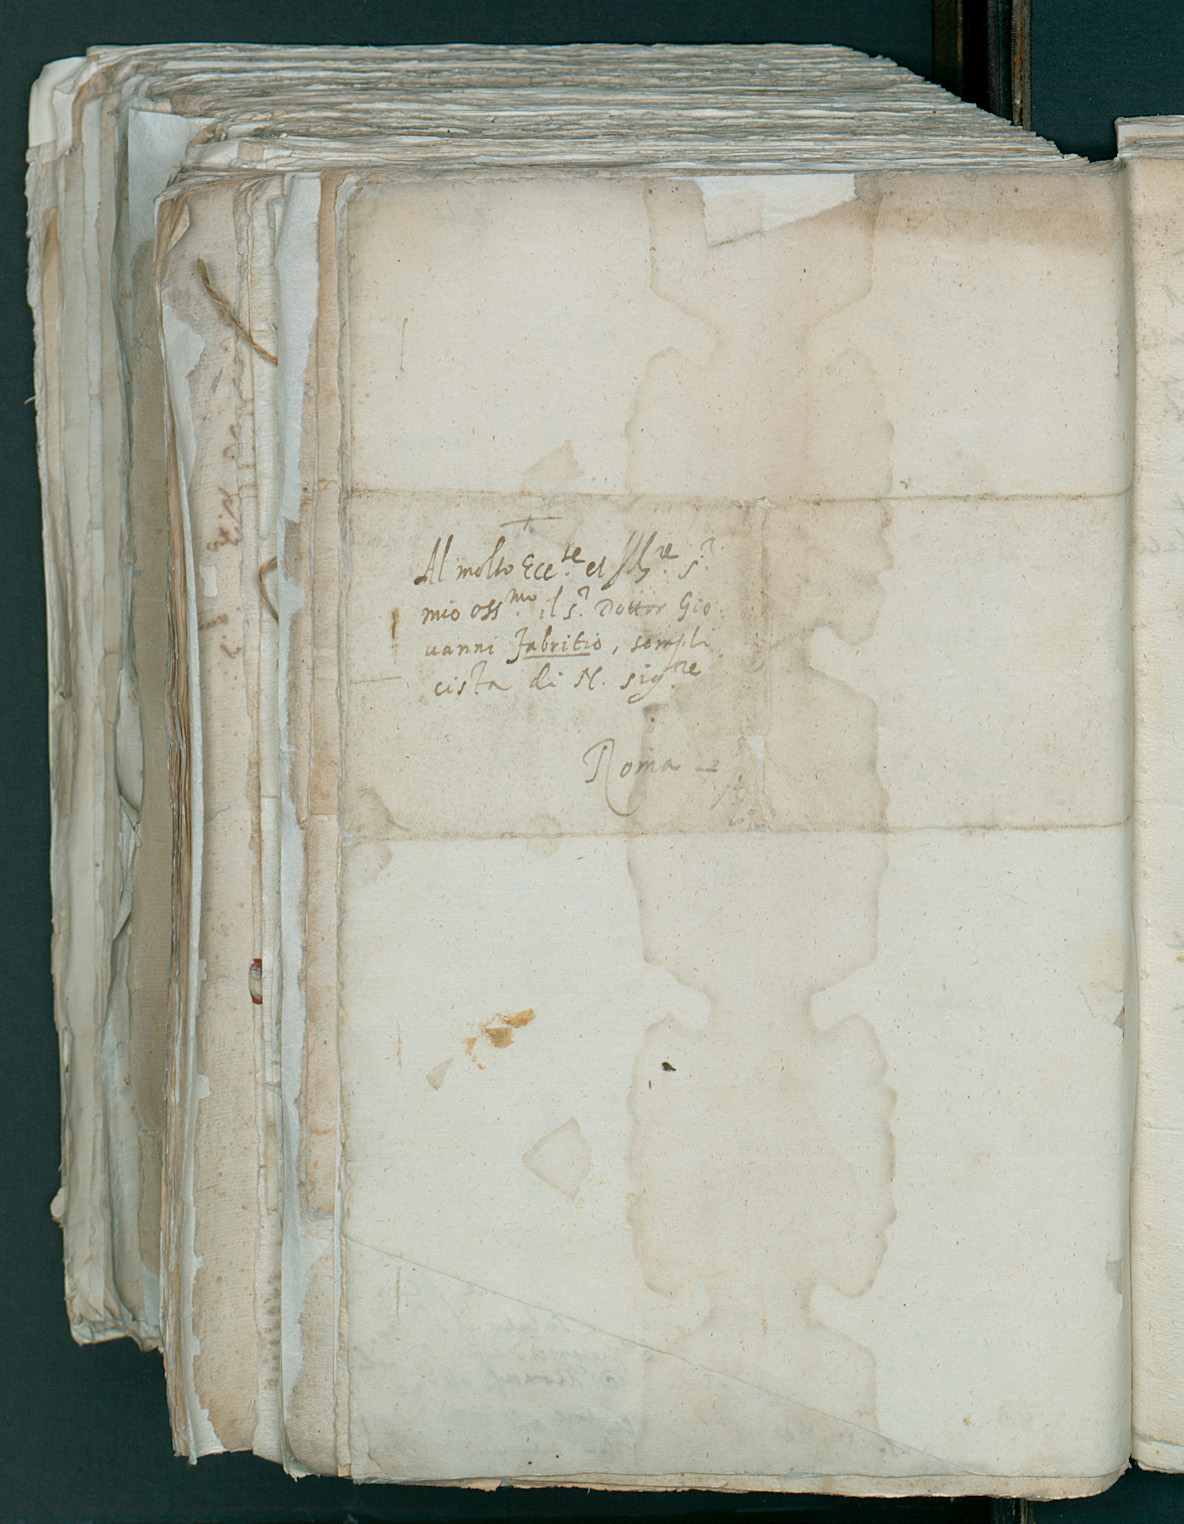 +
Al molto Ecc.te et Ill.re s.r
mio oss.mo il s.r Dottor Gio
uanni Fabritio, sempli
cista di N. sig.re
Roma